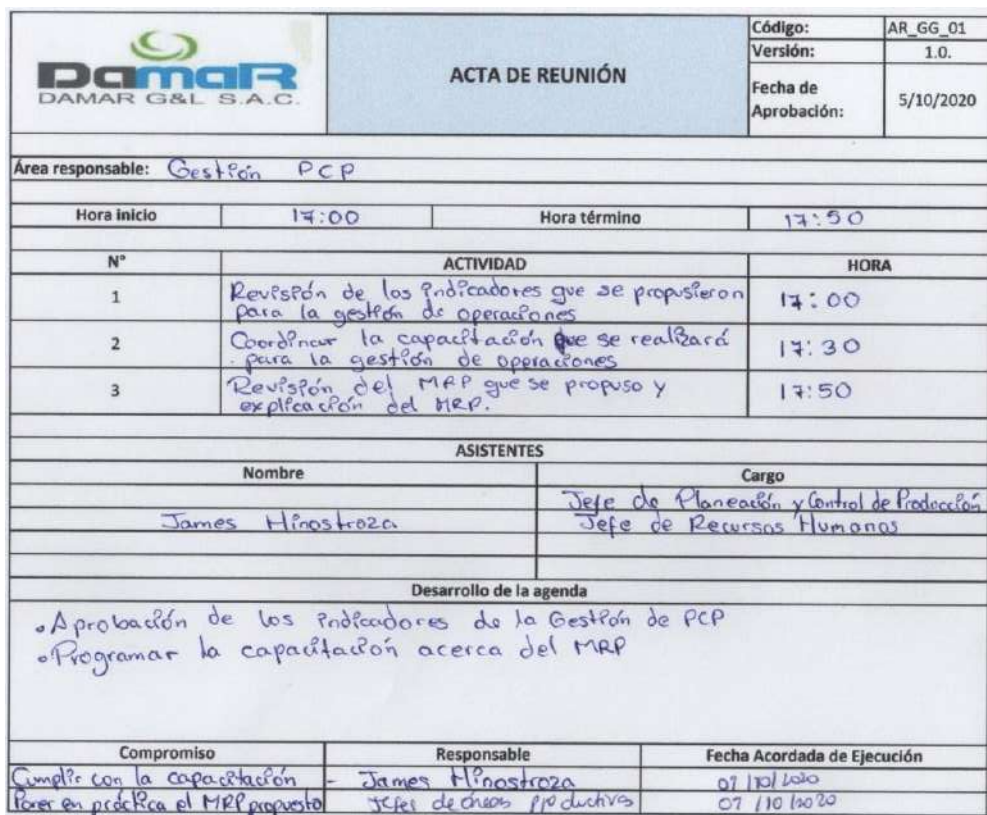 DamaR
DAMAR G&L S.A.C.
ACTA DE REUNIÓN
Código: AR_GG_01
Versión: 1.0.
Fecha de Aprobación: 5/10/2020
Área responsable: Gestión PCP
Hora inicio 17:00 Hora término 17:50
N° ACTIVIDAD HORA
1 Revisión de los indicadores que se propusieron
para la gestión de operaciones 17:00
2 Coordinar la capacitación que se realizará
para la gestión de operaciones 17:30
3 Revisión del MRP que se propuso y
explicación del MRP. 17:50
ASISTENTES
Nombre Cargo
Jefe de Planeación y Control de Producción
James Hinostroza Jefe de Recursos Humanos
Desarrollo de la agenda
• Aprobación de los indicadores de la Gestión de PCP
• Programar la capacitación acerca del MRP
Compromiso Responsable Fecha Acordada de Ejecución
Cumplir con la capacitación - James Hinostroza 07/10/2020
Poner en práctica el MRP propuesto Jefes de productivas 07/10/2020